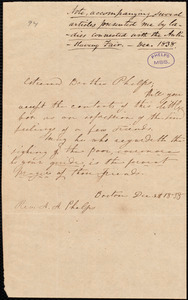 Note accompanying several
articles presented me by la-
dies connected with the Anti-
Slavery Fair. Dec. 1838.
PHELPS
MSS.
Esteemed Brother Phelps,
Will you
accept the contents of this little
box as an expression of the
feelings of a few friends.
May he who regardeth the
sighing of the poor
be your guide, is the
prayer of these friends.
Boston Dec 28 1838
Rev. A. A. Phelps